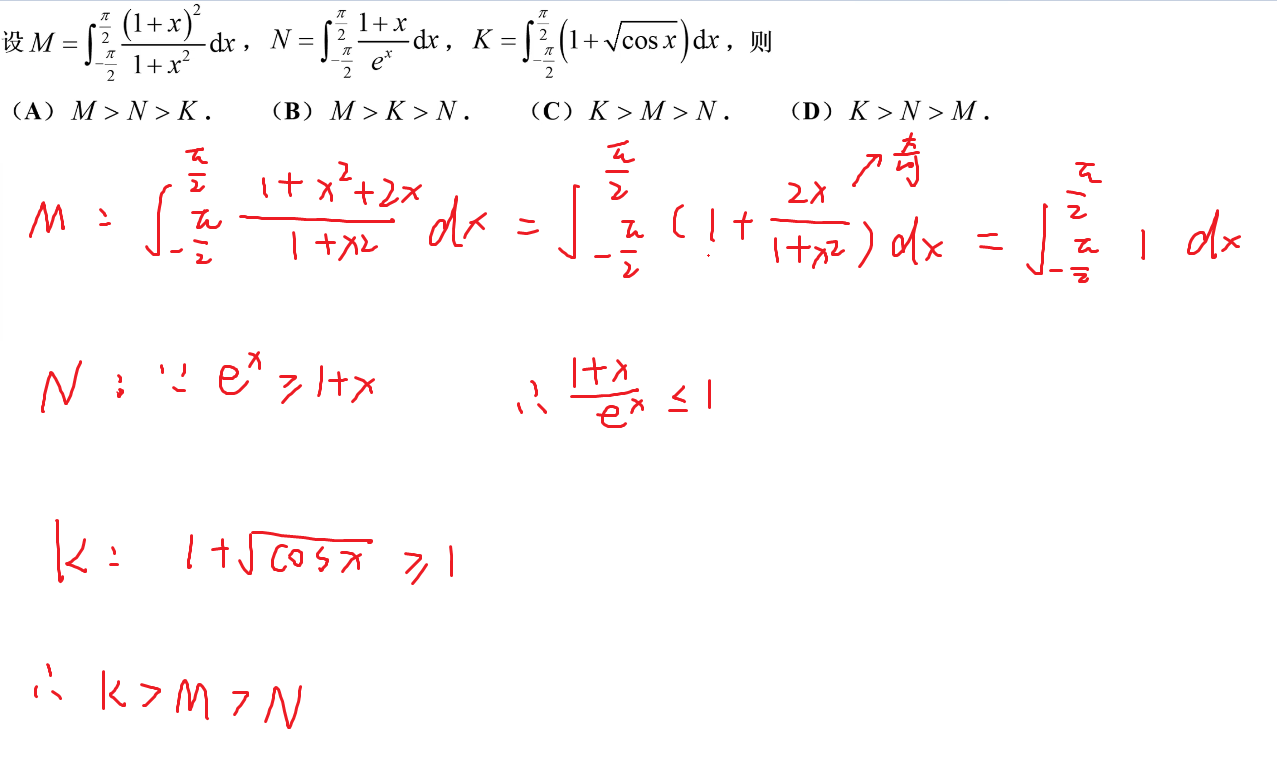 设 M = ∫_{-π/2}^{π/2} (1+x)²/(1+x²) dx，N = ∫_{-π/2}^{π/2} (1+x)/eˣ dx，K = ∫_{-π/2}^{π/2} (1+√cos x) dx，则
（A）M > N > K．（B）M > K > N．（C）K > M > N．（D）K > N > M．
奇
M : ∫_{-π/2}^{π/2} (1+x²+2x)/(1+x2) dx = ∫_{-π/2}^{π/2} (1 + 2x/(1+x²)) dx = ∫_{-π/2}^{π/2} 1 dx
N : ∵ eˣ ≥ 1+x ∴ (1+x)/eˣ ≤ 1
K : 1+√cosx ≥ 1
∴ K > M > N